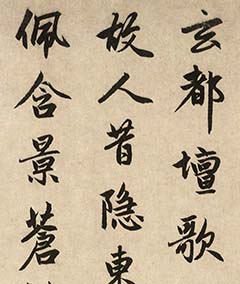 玄都壇歌
故人昔隐東
佩含景蒼